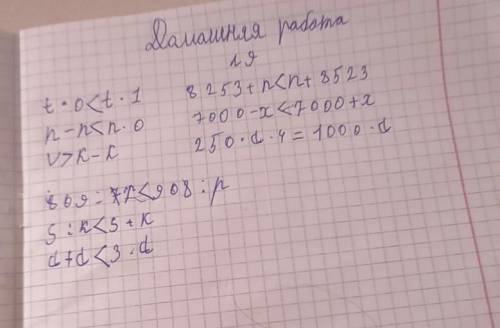 Дамашняя работа
t · 0 < t · 1
n - n < n · 0
v > k - k
8253 + n < n + 8523
7000 - x < 7000 + x
250 · d · 4 = 1000 · d
809 : < 908 : p
5 : k < 5 + k
d + d < 3 · d